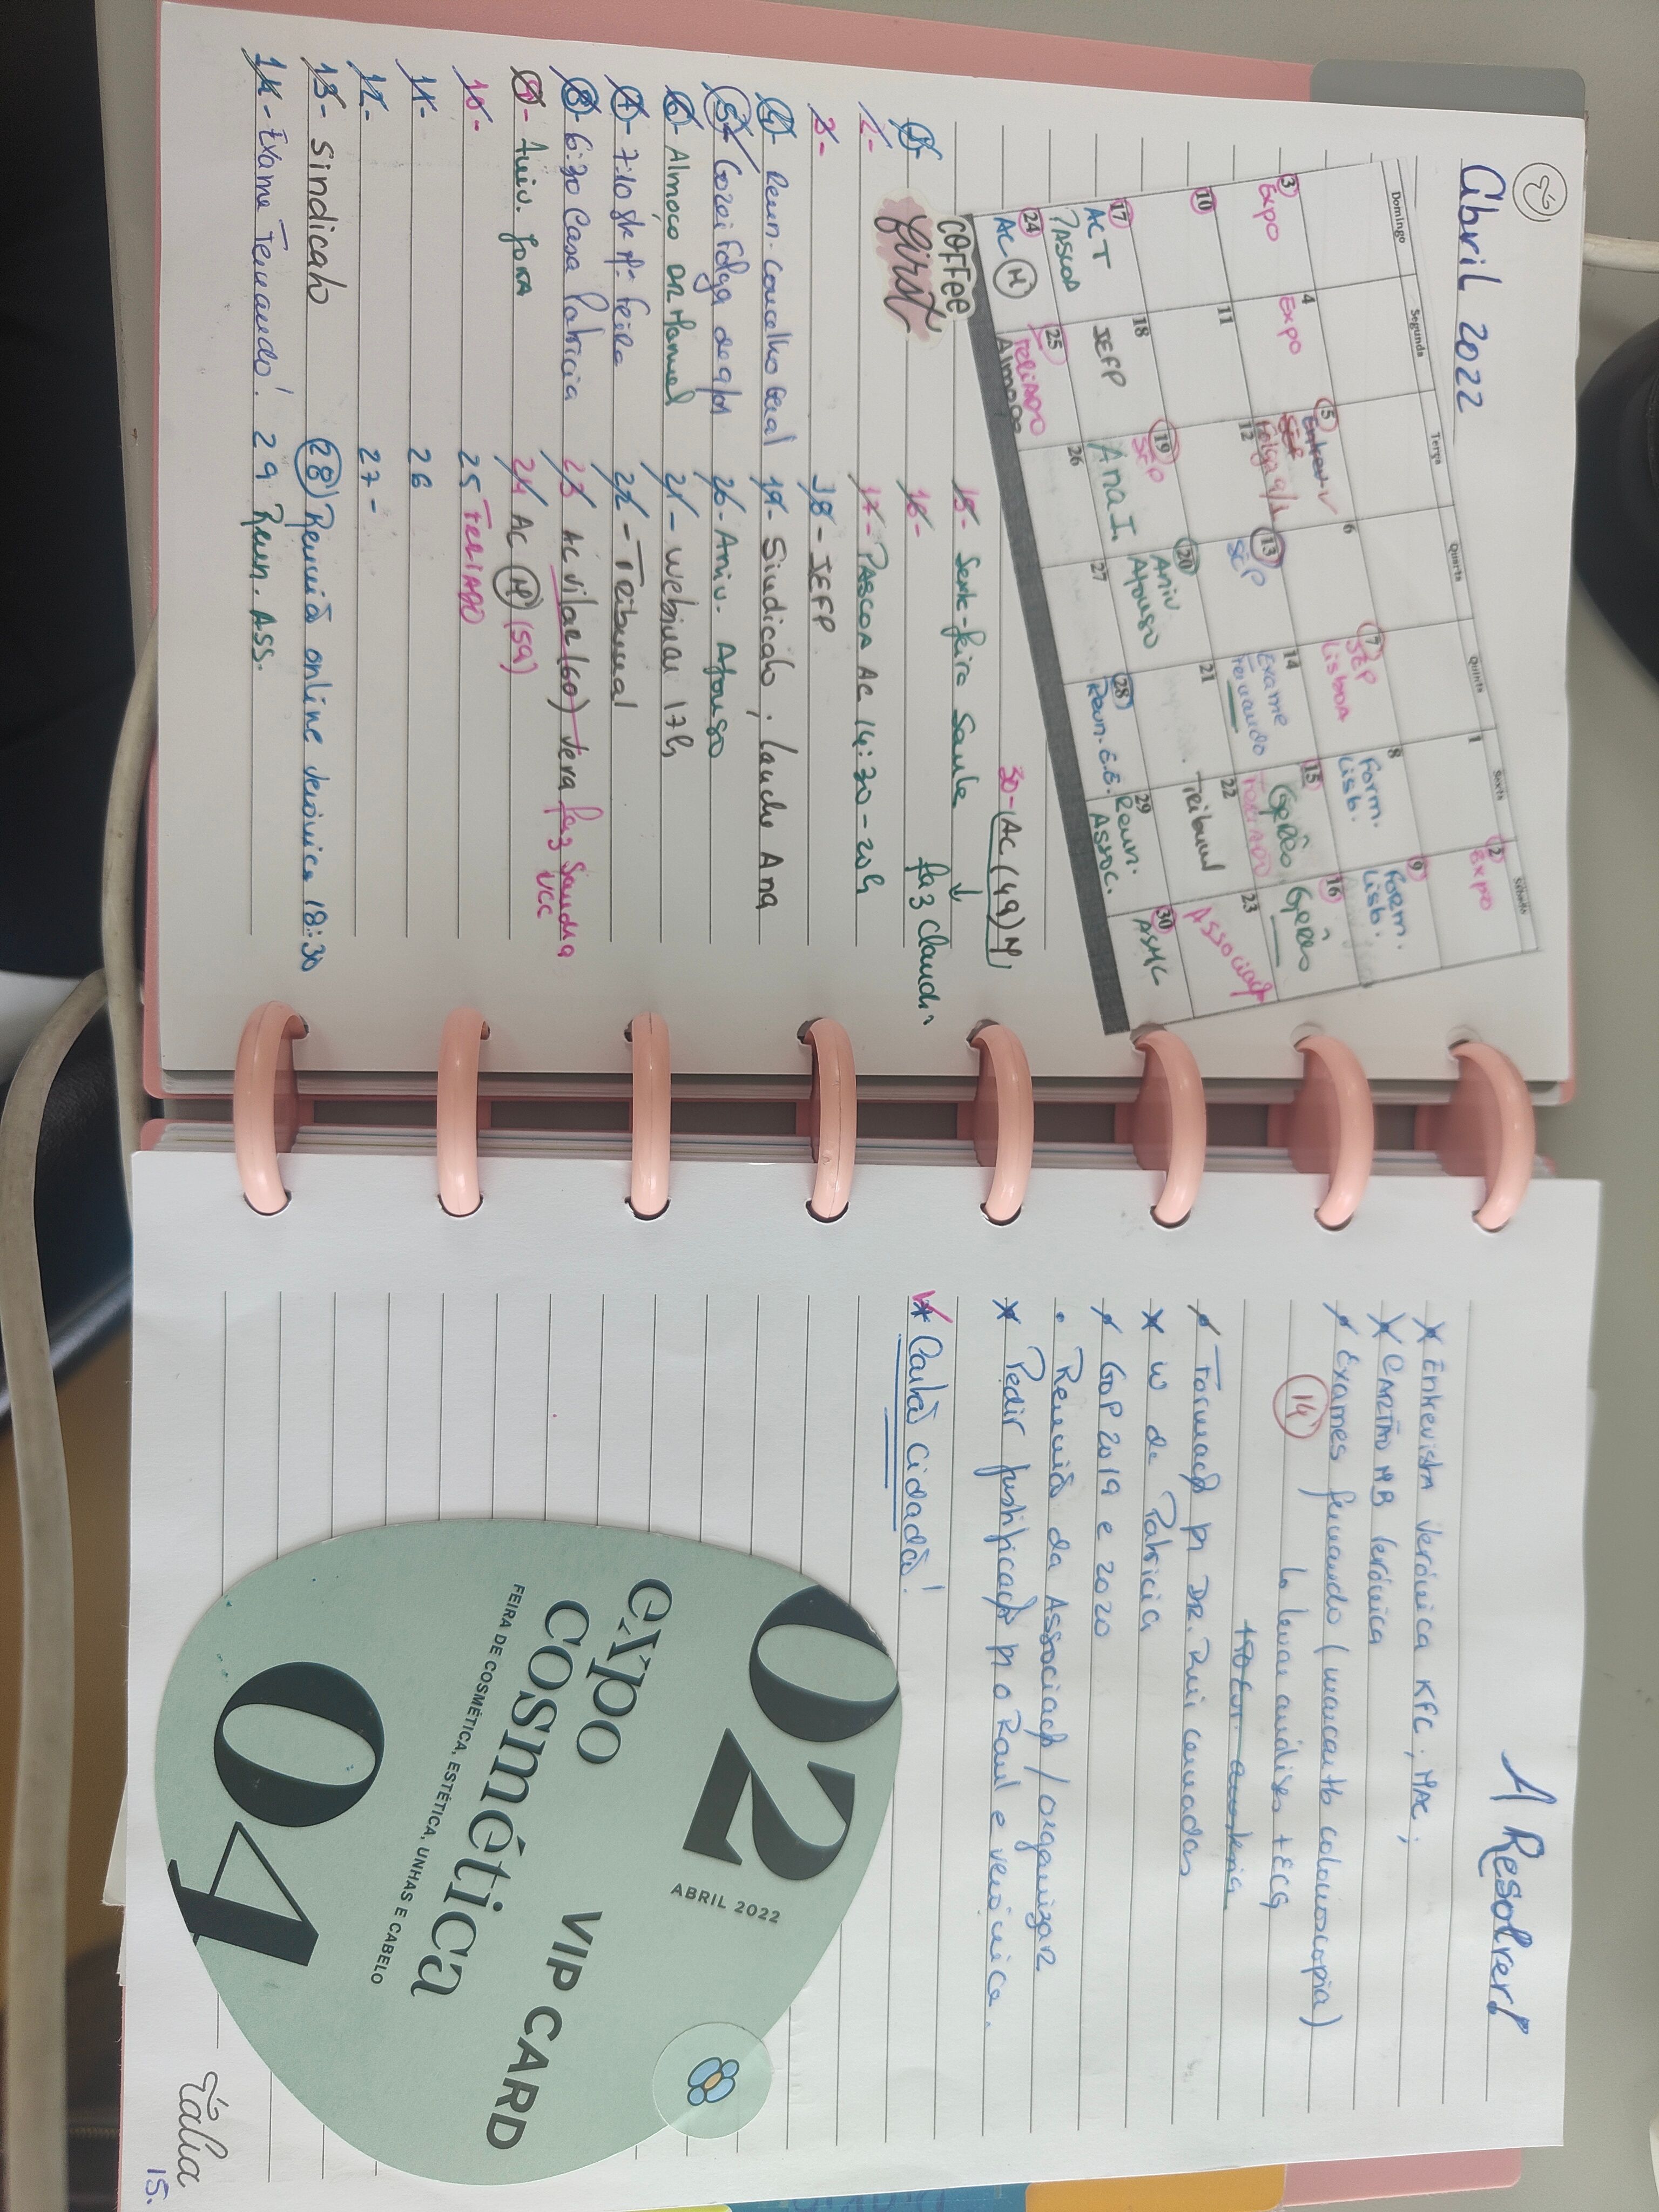 Abril 2022
Domingo Segunda Terça Quarta Quinta Sexta Sábado
1 2 Expo
3 Expo 4 Expo 5 6 7 SEP Lisboa 8 Form. Lisb. 9 Form. Lisb.
10 11 12 Folga 13 SEP 14 Exame Fernando 15 Gerês FERIADO 16 Gerês
17 ACT PASCOA 18 IEFP 19 SEP Ana I. 20 Aniv Afonso 21 22 Tribunal 23 Associaçã
24 AC M 25 FERIADO Almoço 26 27 28 Reun. 29 Reun. Assoc. 30
COFFEE
first
30- AC (49) M
1-
2-
3-
4- Reun. concelho Geral
5-
6- Almoço DR Manuel
7-
8- 6:30 Casa Patricia
9- Aniv.
10-
11-
12-
13- Sindicato
14- Exame Fernando!
15- Sexta-feira Santa
faz
16-
17- PASCOA AC 14:30-20h
18- IEFP
19- Sindicato; lanche Ana
20- Aniv. Afonso
21- Webinar 17h
22- Tribunal
23 AC Vilar (60) Vera faz Sandra
VCC
24 AC M (59)
25 FERIADO
26
27-
28 Reunião online Verónica 18:30
29 Reun. ASS.
A Resolver!
Entrevista Verónica KFC; MAC;
CARTÃO MB Verónica
Exames Fernando (marcado colonoscopia)
14 levar análises + ECG
Formaçã p/ DR. Rui
W da Patricia
GOP 2019 e 2020
Reunião da Associaçã / organizar
Pedir justificaçã p/ o Raul e Verónica.
Cartão cidadão!
02
ABRIL 2022
expo
cosmética
FEIRA DE COSMÉTICA, ESTÉTICA, UNHAS E CABELO
04
VIP CARD
15.